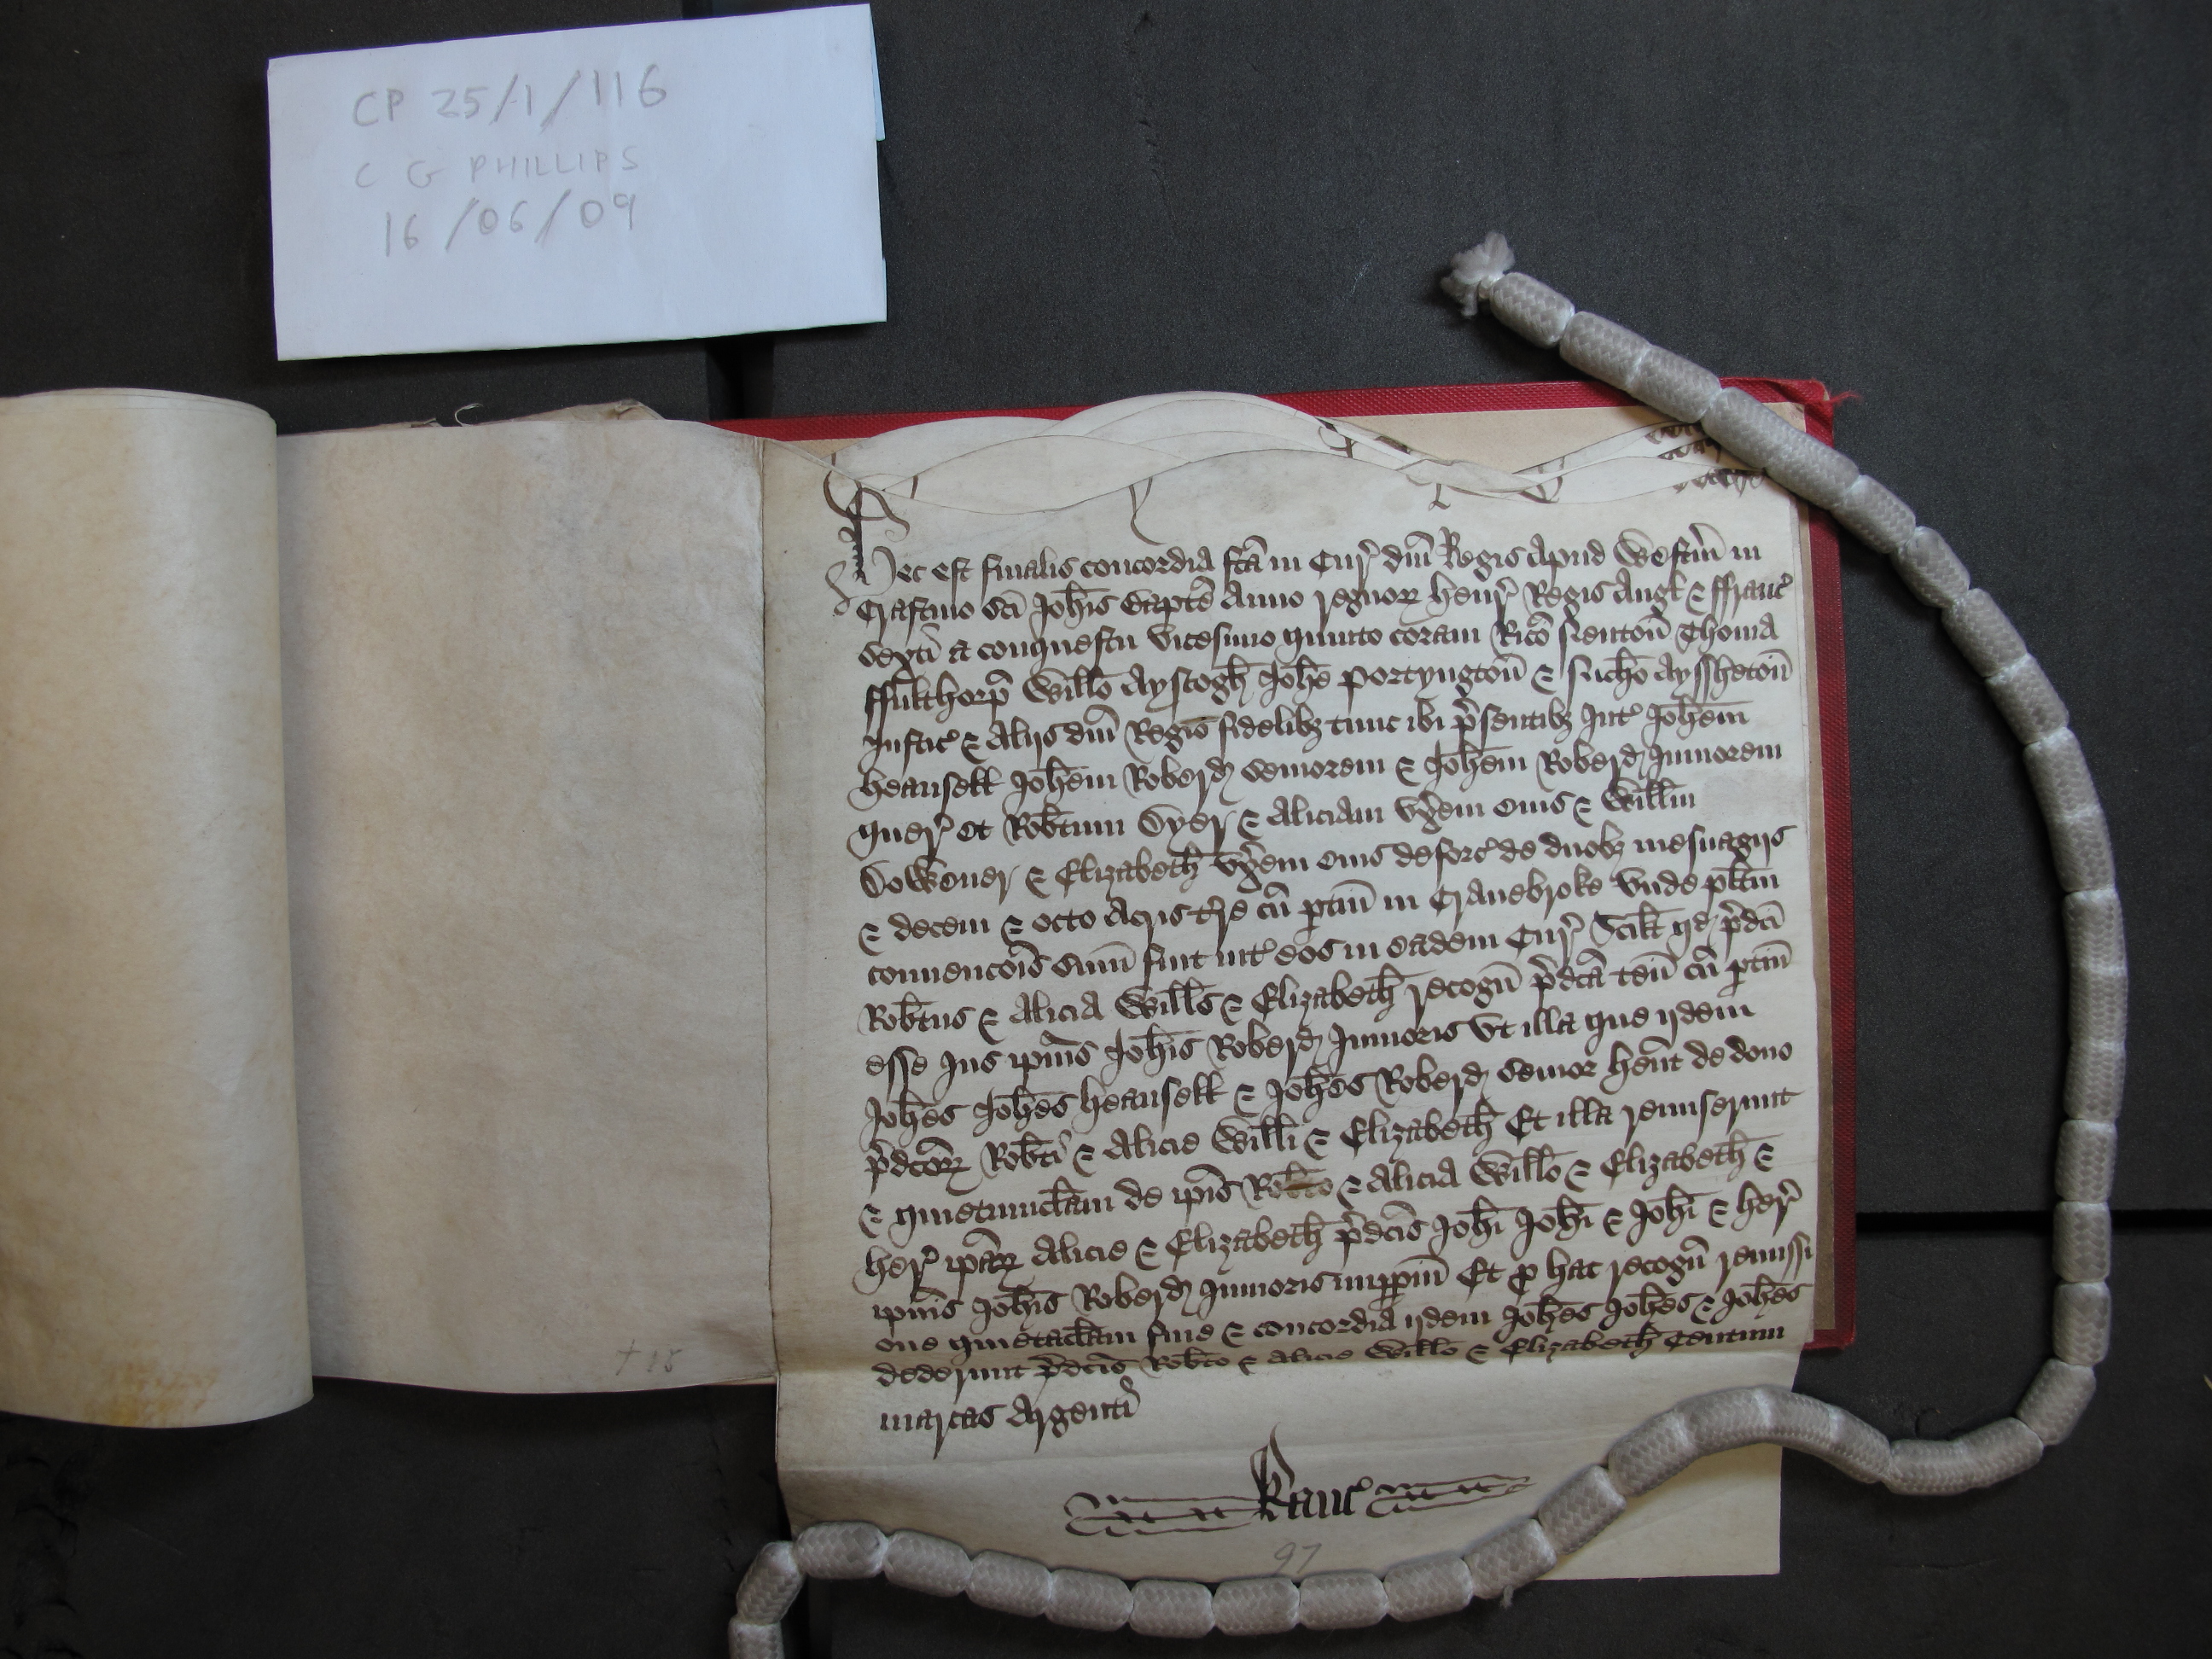 CP 25/1/116
C G PHILLIPS
16/06/09
Hec est finalis concordia fc̄a in Cur̉ dn̄i Regis Apud Westm̄ in
Crastino sc̄i Joh̄is Bapt̄e Anno regnoꝝ Henr̉ Regis Angł & ffranc̉
Sexti a conquestu vicesimo quinto coram Ric̄o Neuton̄ Thoma
ffulthorp̄ Wiłło Ayscogh̄ Joh̄e Portyngton̄ & Nich̄o Ayssheton̄
Justic̉ & Alijs dn̄i Regis fidelibꝫ tunc ibi p̉sentibꝫ Int̉ Joh̄em
Heansełł Joh̄em Roberdꝭ Seniorem & Joh̄em Roberdꝭ Juniorem
quer̉ Et Rob̄tum Dyer & Aliciam vx̉em eius & Wiłłm
Doweuer & Elizabeth̄ vx̉em eius deforc̉ de duobꝫ mesuagijs
& decem & octo Acris t̉re cū ptin̄ in Cranebroke Vnde płitm
convenc̄ois sum̄ fuit int̉ eos in eadem Cur̉ Scilt̄ qd p̉dc̄i
Rob̄tus & Alicia Wiłłs & Elizabeth̄ recogn̄ p̉dc̄a ten̄ cū ptin̄
esse Jus ip̄ius Joh̄is Roberdꝭ Junioris vt illa que ijdem
Joh̄es Joh̄es Heansełł & Joh̄es Roberdꝭ Senior hēnt de dono
p̉dc̄oꝝ Rob̄ti & Alicie Wiłłi & Elizabeth̄ Et illa remiserunt
& quietumclam̄ de ip̄is Rob̄to & Alicia Wiłło & Elizabeth̄ &
her̉ ip̄aꝝ Alicie & Elizabeth̄ p̉dc̄is Joh̄i Joh̄i & Joh̄i & her̉
ip̄ius Joh̄is Roberdꝭ Junioris imppm̄ Et ꝓ hac recogn̄ remissi
one quietaclam̄ fine & concordia ijdem Joh̄es Joh̄es & Joh̄es
dederunt p̉dc̄is Rob̄to & Alicie Wiłło & Elizabeth̄ Centum
marcas Argenti
Kanc̉
97